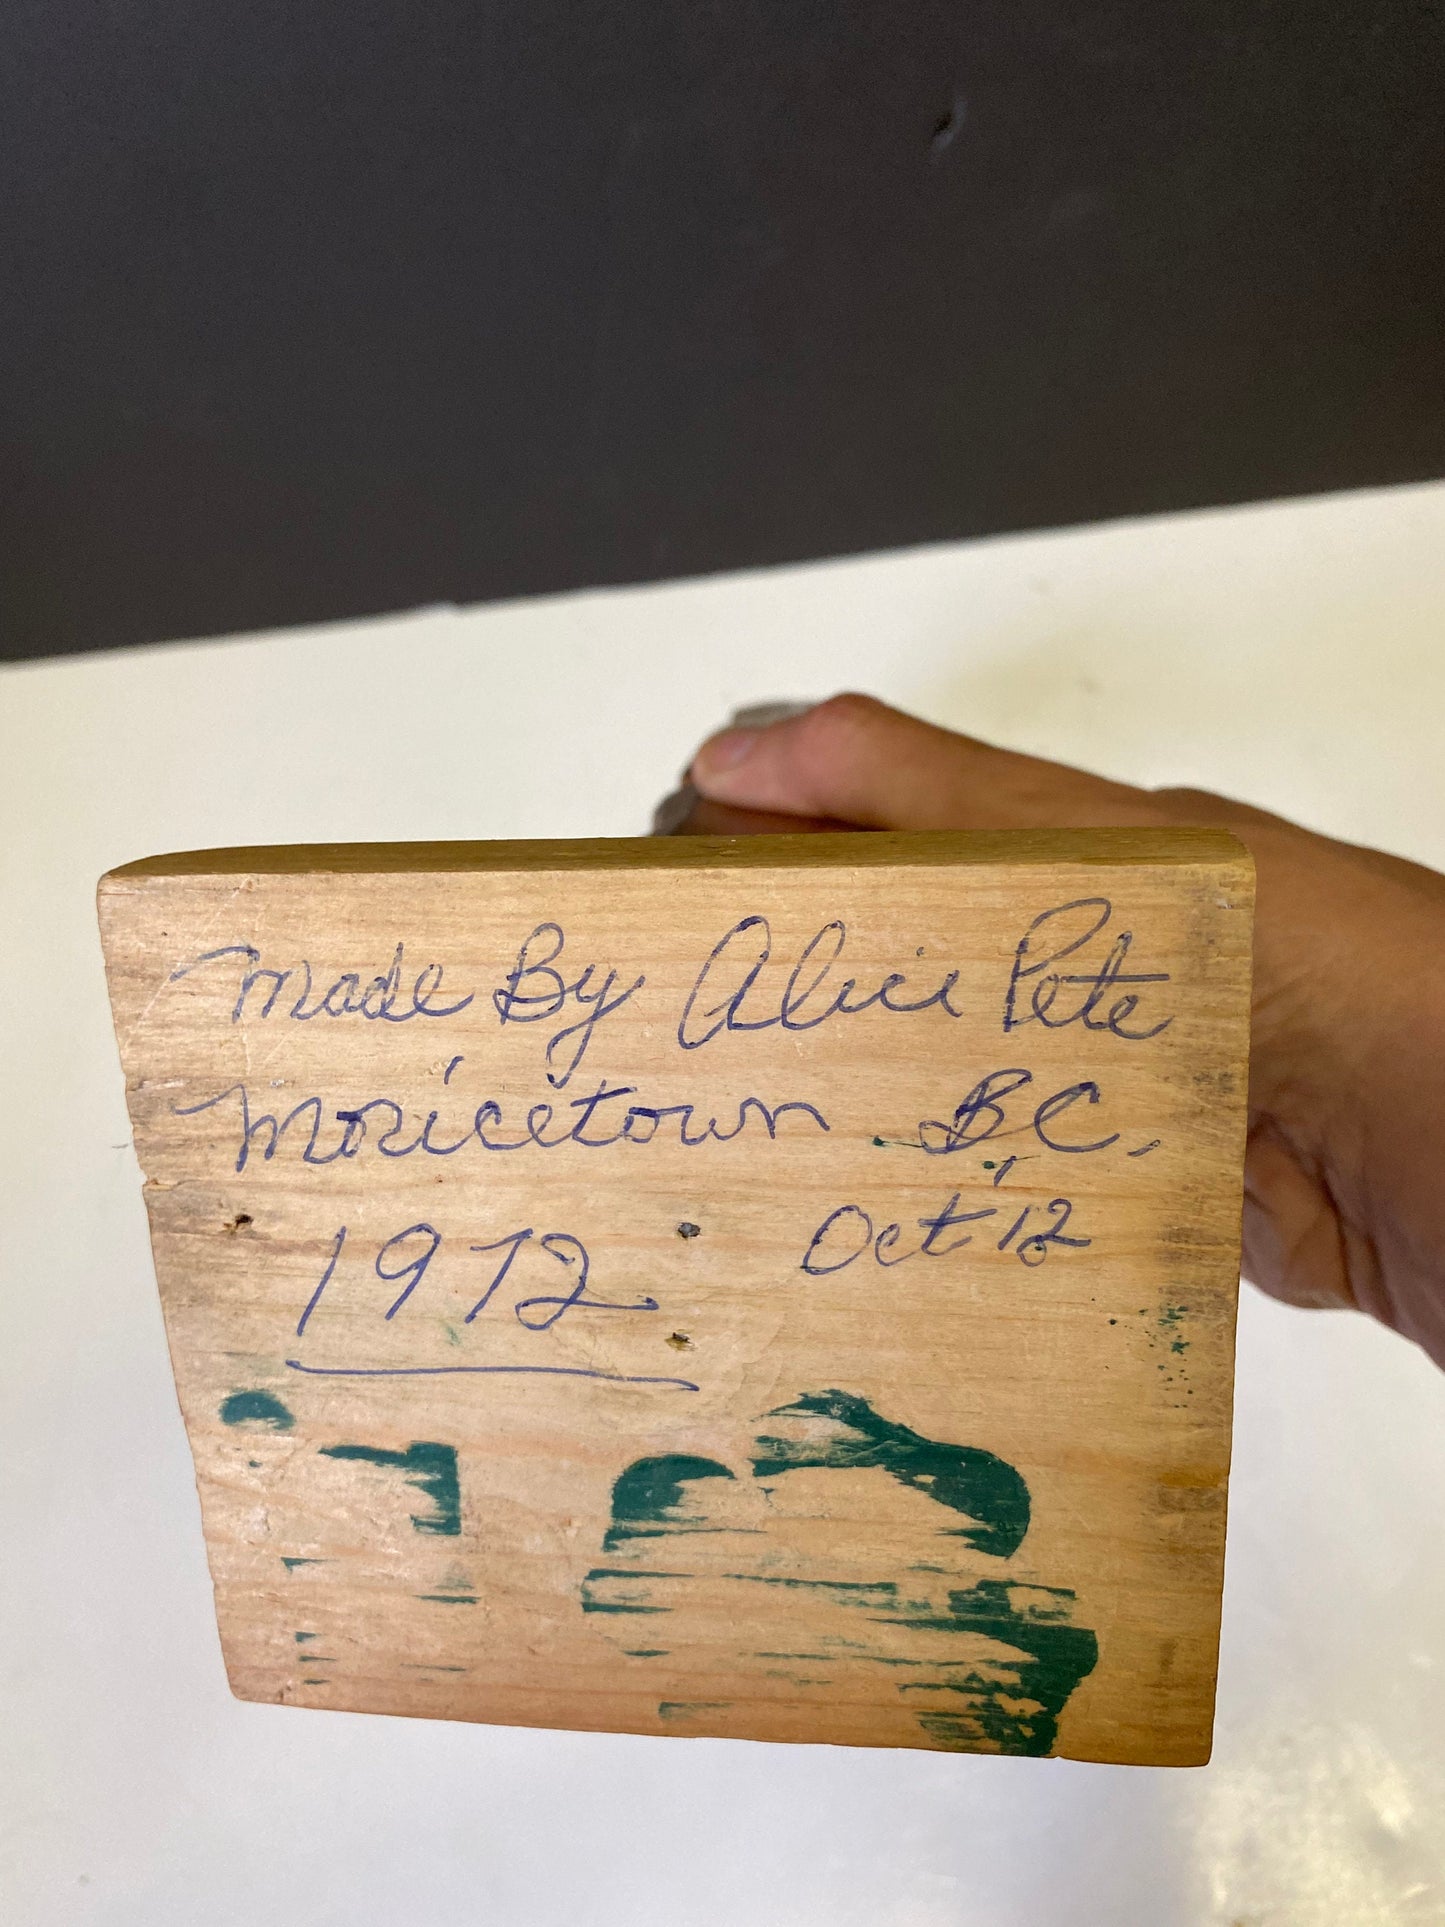 Made By Alice Pete
Moricetown BC.
1972
Oct 12